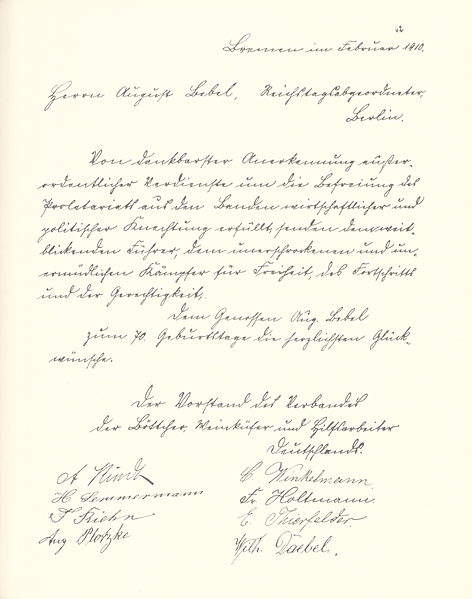 Bremen im Februar 1910.
Herrn August Bebel, Reichstagsabgeordneter,
Berlin.
Von dankbarster Anerkennung außer-
ordentlicher Verdienste um die Befreiung des
Proletariats aus den Banden wirtschaftlicher und
politischer Knechtung erfüllt, senden dem weit
blickenden Führer, dem unerschrockenen und un-
ermüdlichen Kämpfer für Freiheit, des Fortschritts
und der Gerechtigkeit,
dem Genossen Aug. Bebel
zum 70. Geburtstage die herzlichsten Glück-
wünsche.
Der Vorstand des Verbandes
der Böttcher, Weinküfer und Hilfsarbeiter
Deutschlands.
C. Winkelmann
H. Semmermann
Fr. Holtmann
E. Thierfelder
Aug. Plotzke
Wilh. Daebel.